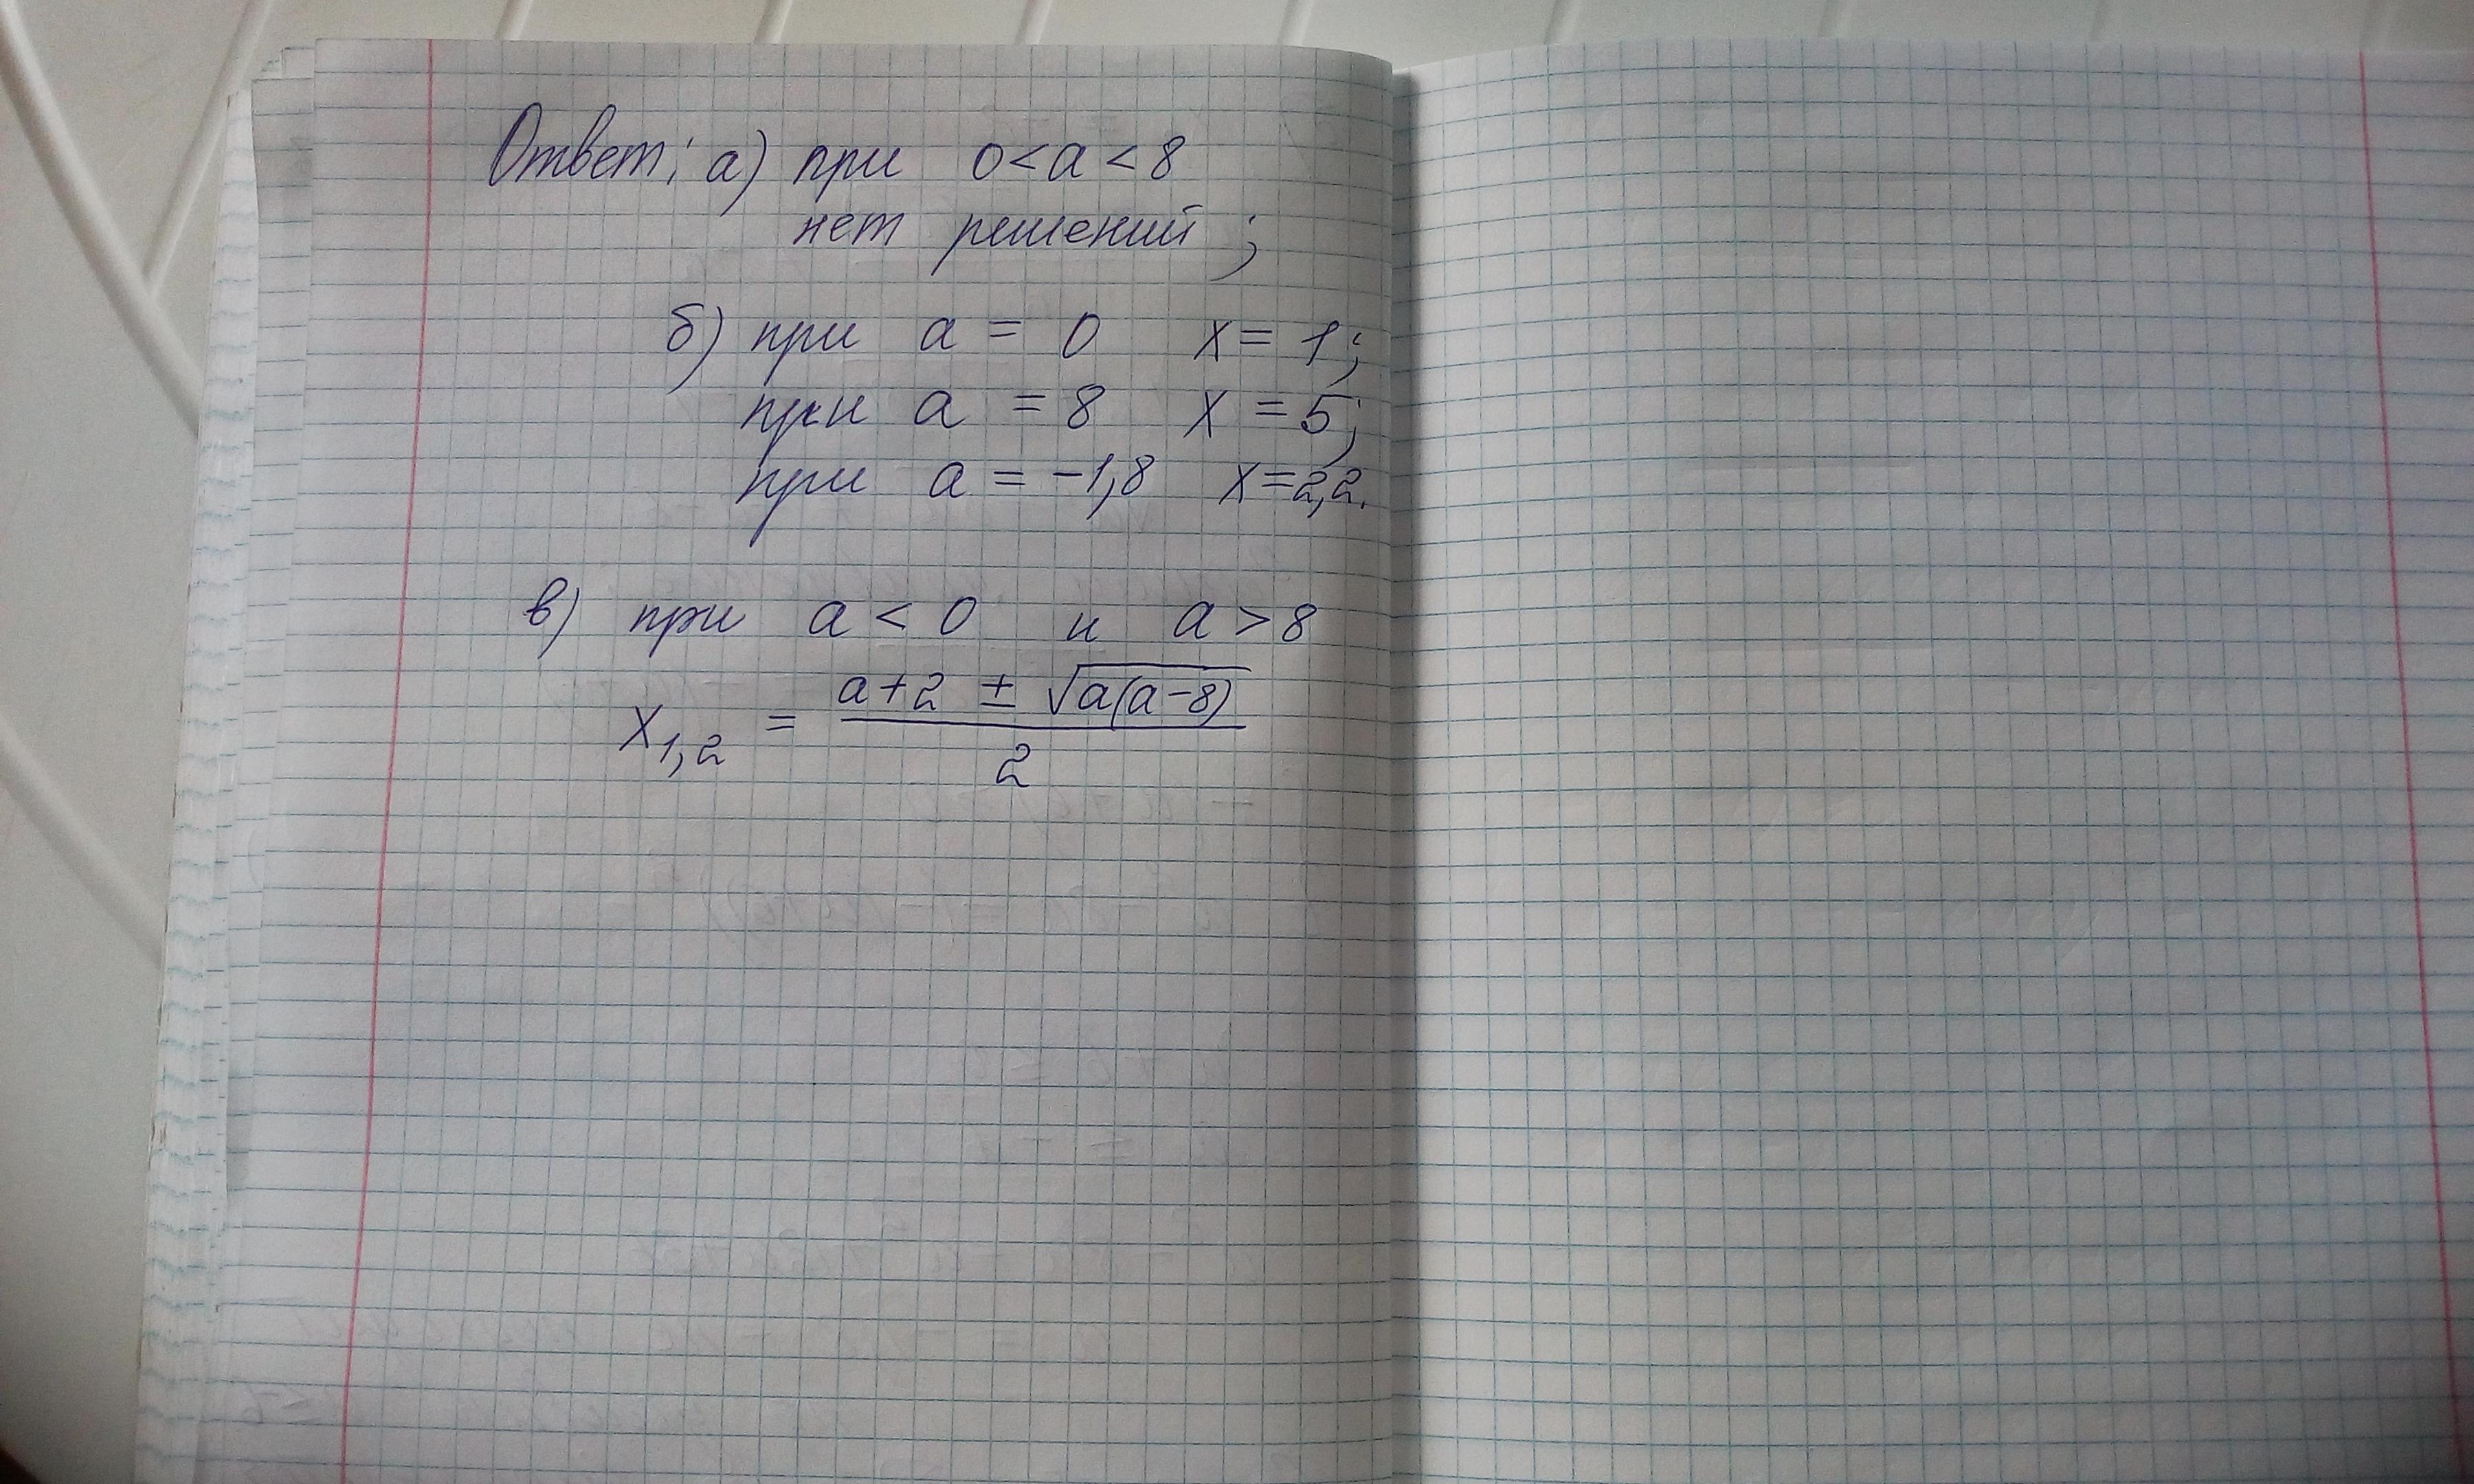 Ответ: а) при 0 < a < 8
нет решений;
б) при a = 0 x = 1;
при a = 8 x = 5;
при a = -1,8 x = 2,2.
в) при a < 0 и a > 8
x₁,₂ = (a + 2 ± √(a(a-8))) / 2